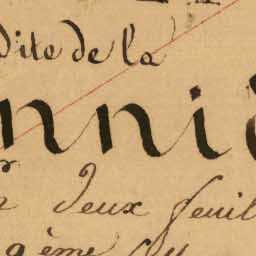 dite de la
nni
deux feuil
9ème